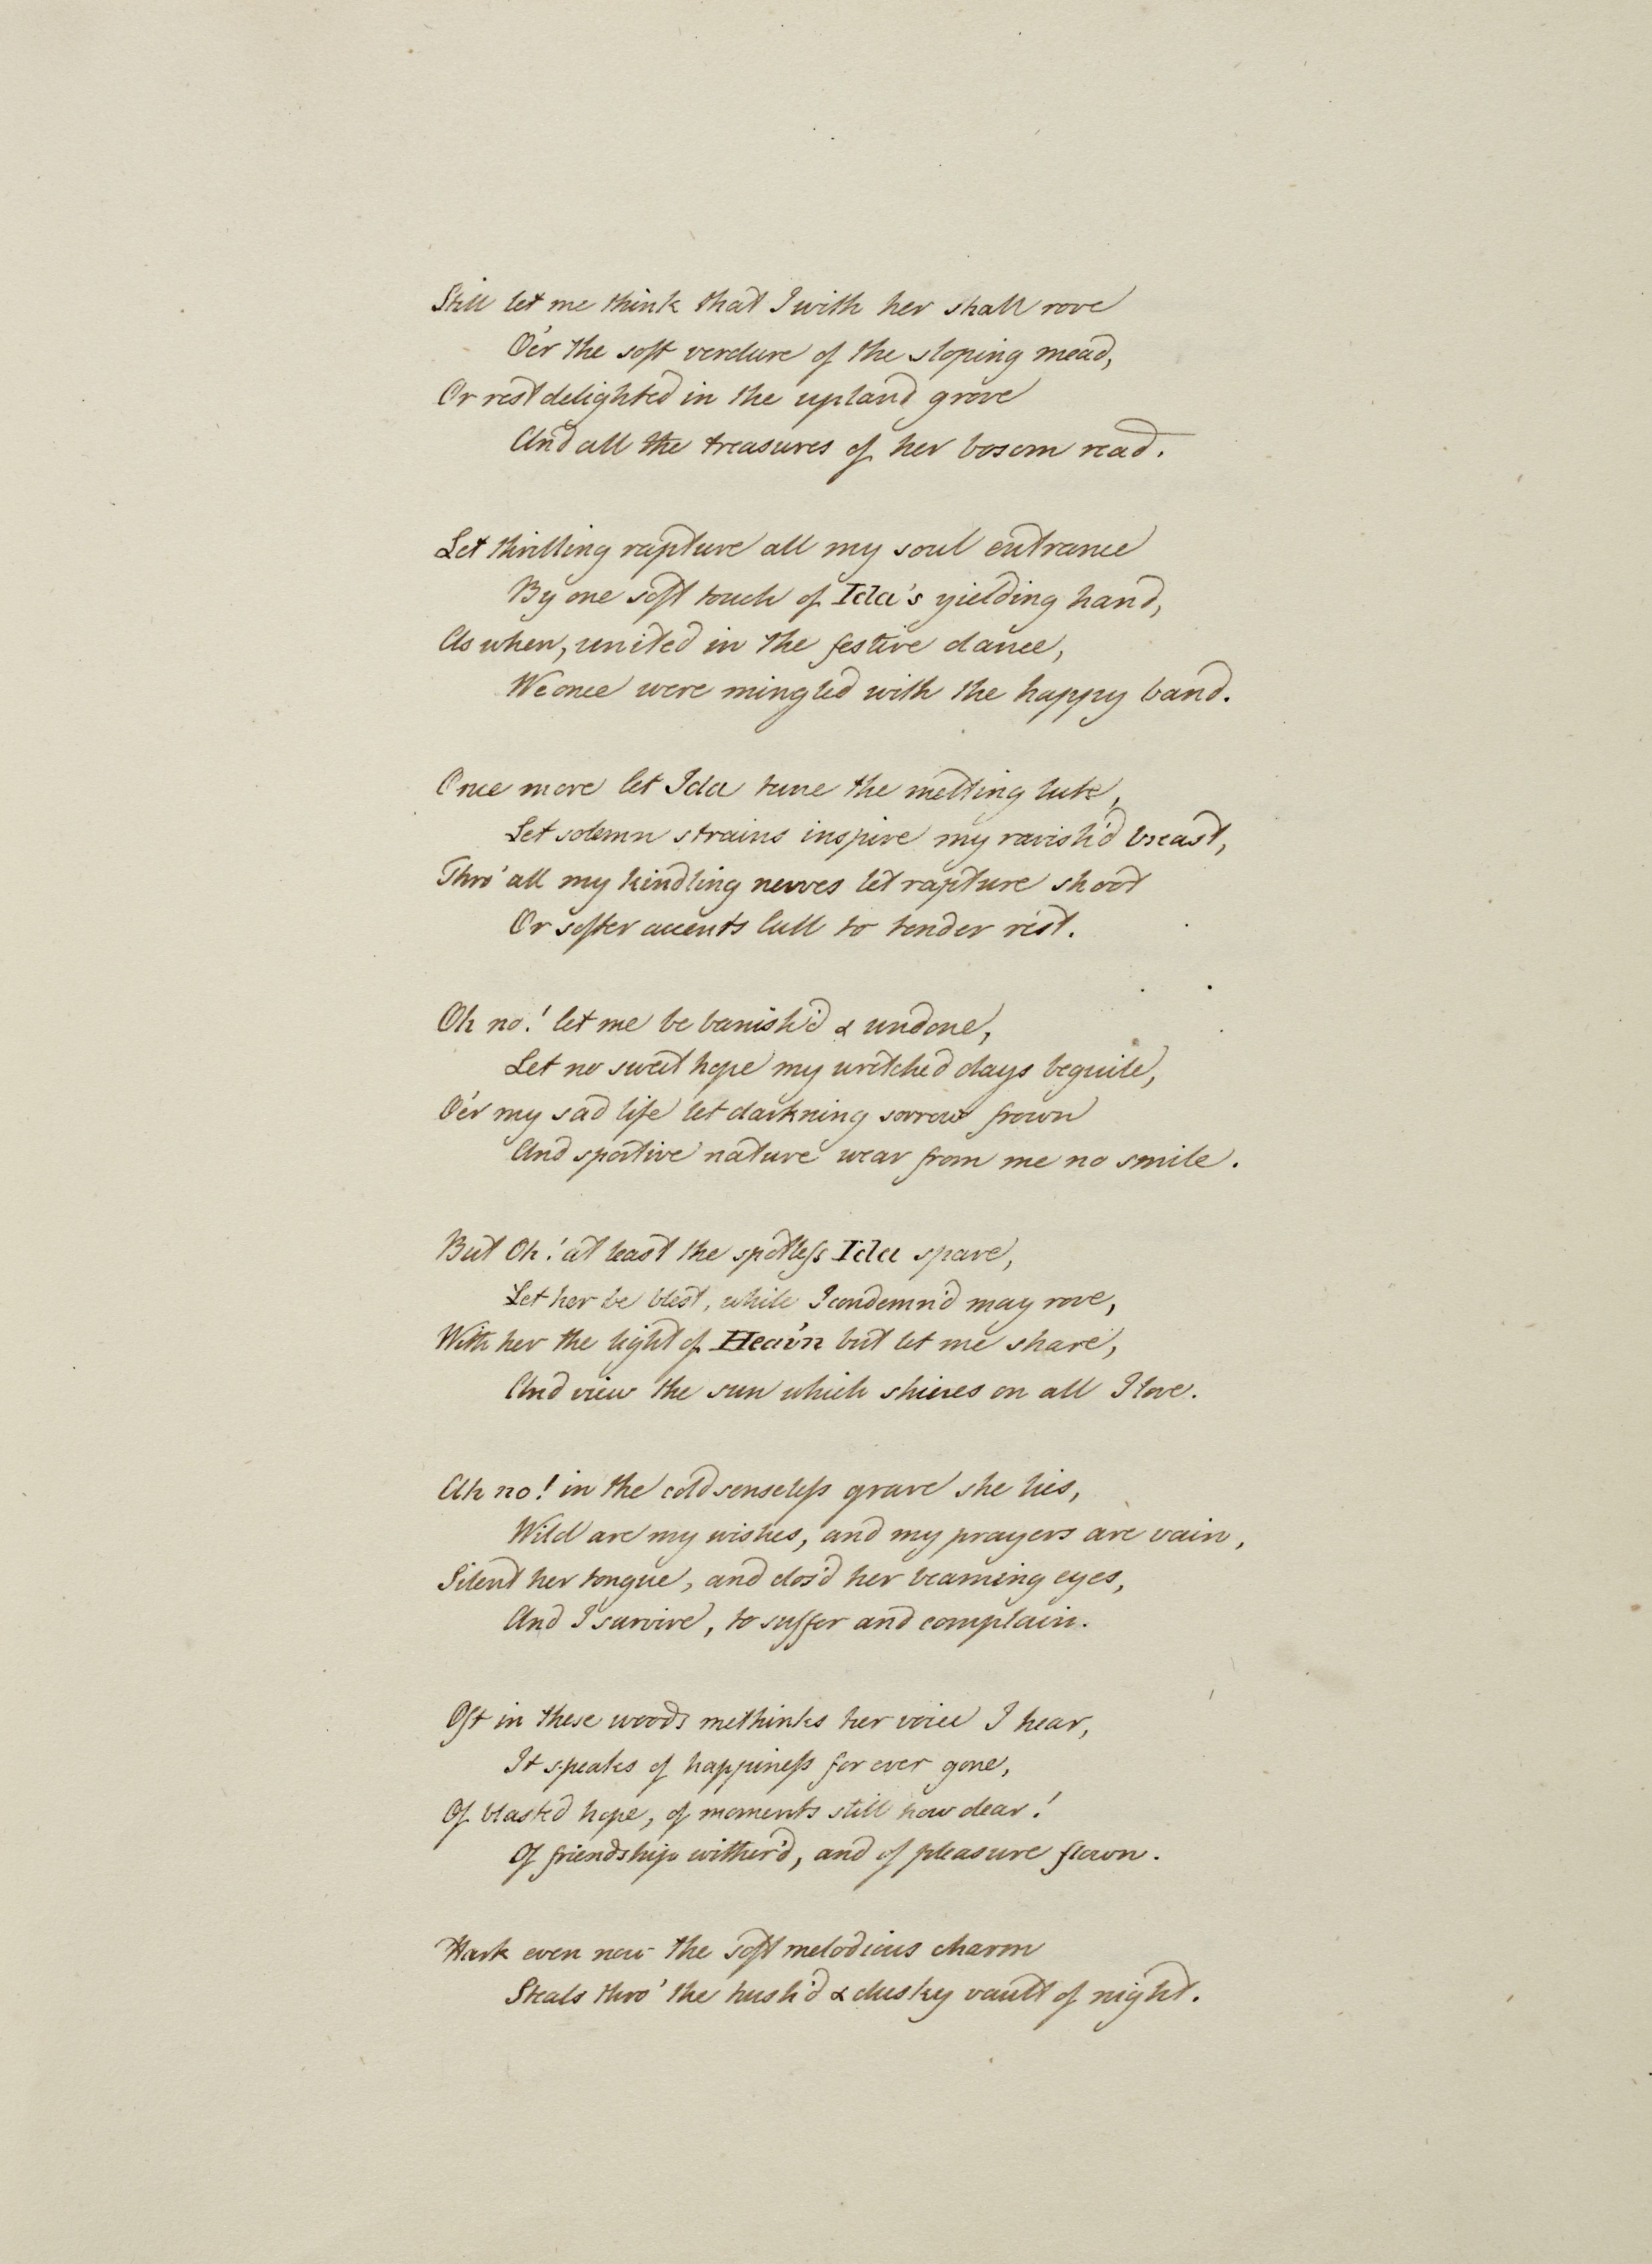 Still let me think that I with her shall rove
O'er the soft verdure of the sloping mead,
Or rest delighted in the upland grove
And all the treasures of her bosom read.
Let thrilling rapture all my soul entrance
By one soft touch of Ida's yielding hand,
As when, united in the festive dance,
We once were mingled with the happy band.
Once more let Ida tune the melting lute,
Let solemn strains inspire my ravish'd breast,
Thro' all my kindling nerves let rapture shoot
Or softer accents lull to tender rest.
Oh no! let me be banish'd & undone,
Let no sweet hope my wretched days beguile,
O'er my sad life let darkning sorrow frown
And sportive nature wear from me no smile.
But Oh! at least the spotleſs Ida spare,
Let her be blest, while I condemn'd may rove,
With her the light of Heav'n but let me share,
And view the sun which shines on all I love.
Ah no! in the cold senseleſs grave she lies,
Wild are my wishes, and my prayers are vain,
Silent her tongue, and clos'd her beaming eyes,
And I survive, to suffer and complain.
Oft in these woods methinks her voice I hear,
It speaks of happineſs for ever gone,
Of blasted hope, of moments still how dear!
Of friendship wither'd, and of pleasure flown.
Hark even now the soft melodious charm
Steals thro' the hush'd & dusky vault of night.